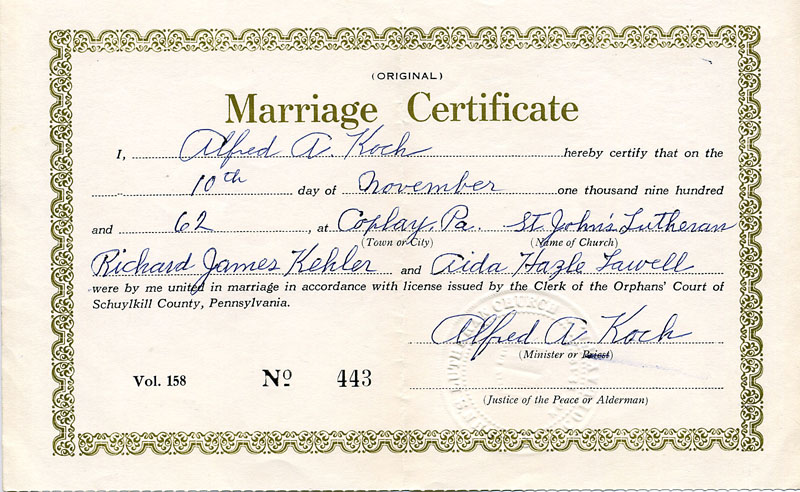 (ORIGINAL)
Marriage Certificate
I, Alfred A. Koch hereby certify that on the
10th day of November one thousand nine hundred
and 62, at Coplay, Pa. St. John's Lutheran
(Town or City) (Name of Church)
Richard James Kehler and Aida Hazle Lawell
were by me united in marriage in accordance with license issued by the Clerk of the Orphans' Court of
Schuylkill County, Pennsylvania.
Alfred A Koch
(Minister or Priest)
Vol. 158 Nº 443
(Justice of the Peace or Alderman)